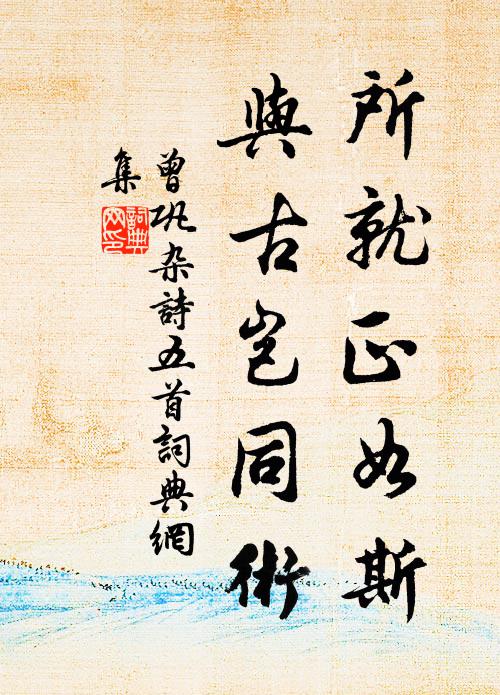 所就正如斯
與古豈同術
曾巩杂詩五首詞典網
集
詞典
网印